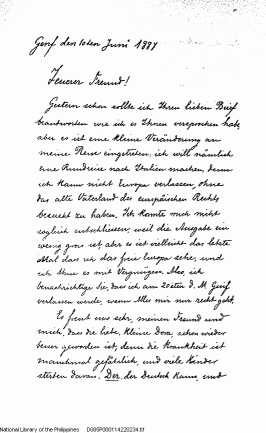 Genf den 10ten Juni 1887
Teuerer Freund!
Gestern schon sollte ich Ihren lieben Brief
beantworten wie ich es Ihnen versprochen habe,
aber es ist eine kleine Veränderung an
meine Reise eingetreten: ich will nämlich
eine Rundreise nach Italien machen, denn
ich kann nicht Europa verlassen, ohne
das alte Vaterland des europäischen Rechts
besucht zu haben. Ich konnte mich nicht
sogleich entschliessen, weil die Ausgabe ein
wenig gross ist, aber es ist vielleicht das letzte
Mal dass ich das freie Europa sehe, und
ich thue es mit Vergnügen. Also, ich
benachrichtige Sie, dass ich am 20sten d. M. Genf
verlassen werde, wenn Alles mir nur recht geht.
Es freut uns sehr, meinen Freund und
mich, dass die liebe, kleine Dora, schon wieder
besser geworden ist; denn die Krankheit ist
manchmal gefährlich, und viele Kinder
sterben daran. Der, der Deutsch kann, und
National Library of the Philippines